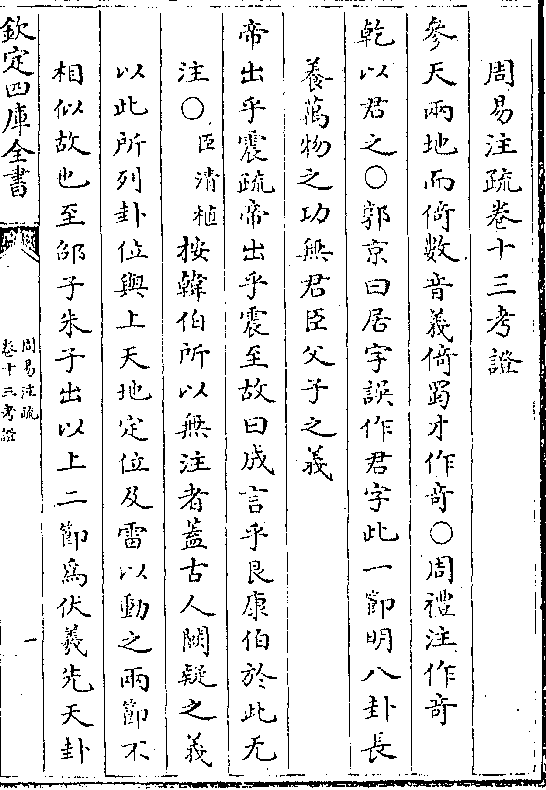 周易注疏卷十三考證
參天兩地而倚數音義倚蜀才作奇○周禮注作奇
乾以君之○郭京曰居字誤作君字此一節明八卦長
養萬物之功無君臣父子之義
帝出乎震疏帝出乎震至故曰成言乎艮康伯於此无
注○臣清植按韓伯所以無注者蓋古人闕疑之義
以此所列卦位與上天地定位及雷以動之兩節不
相似故也至邵子朱子出以上二節為伏羲先天卦
欽定四庫全書
周易注疏
卷十三考證
一